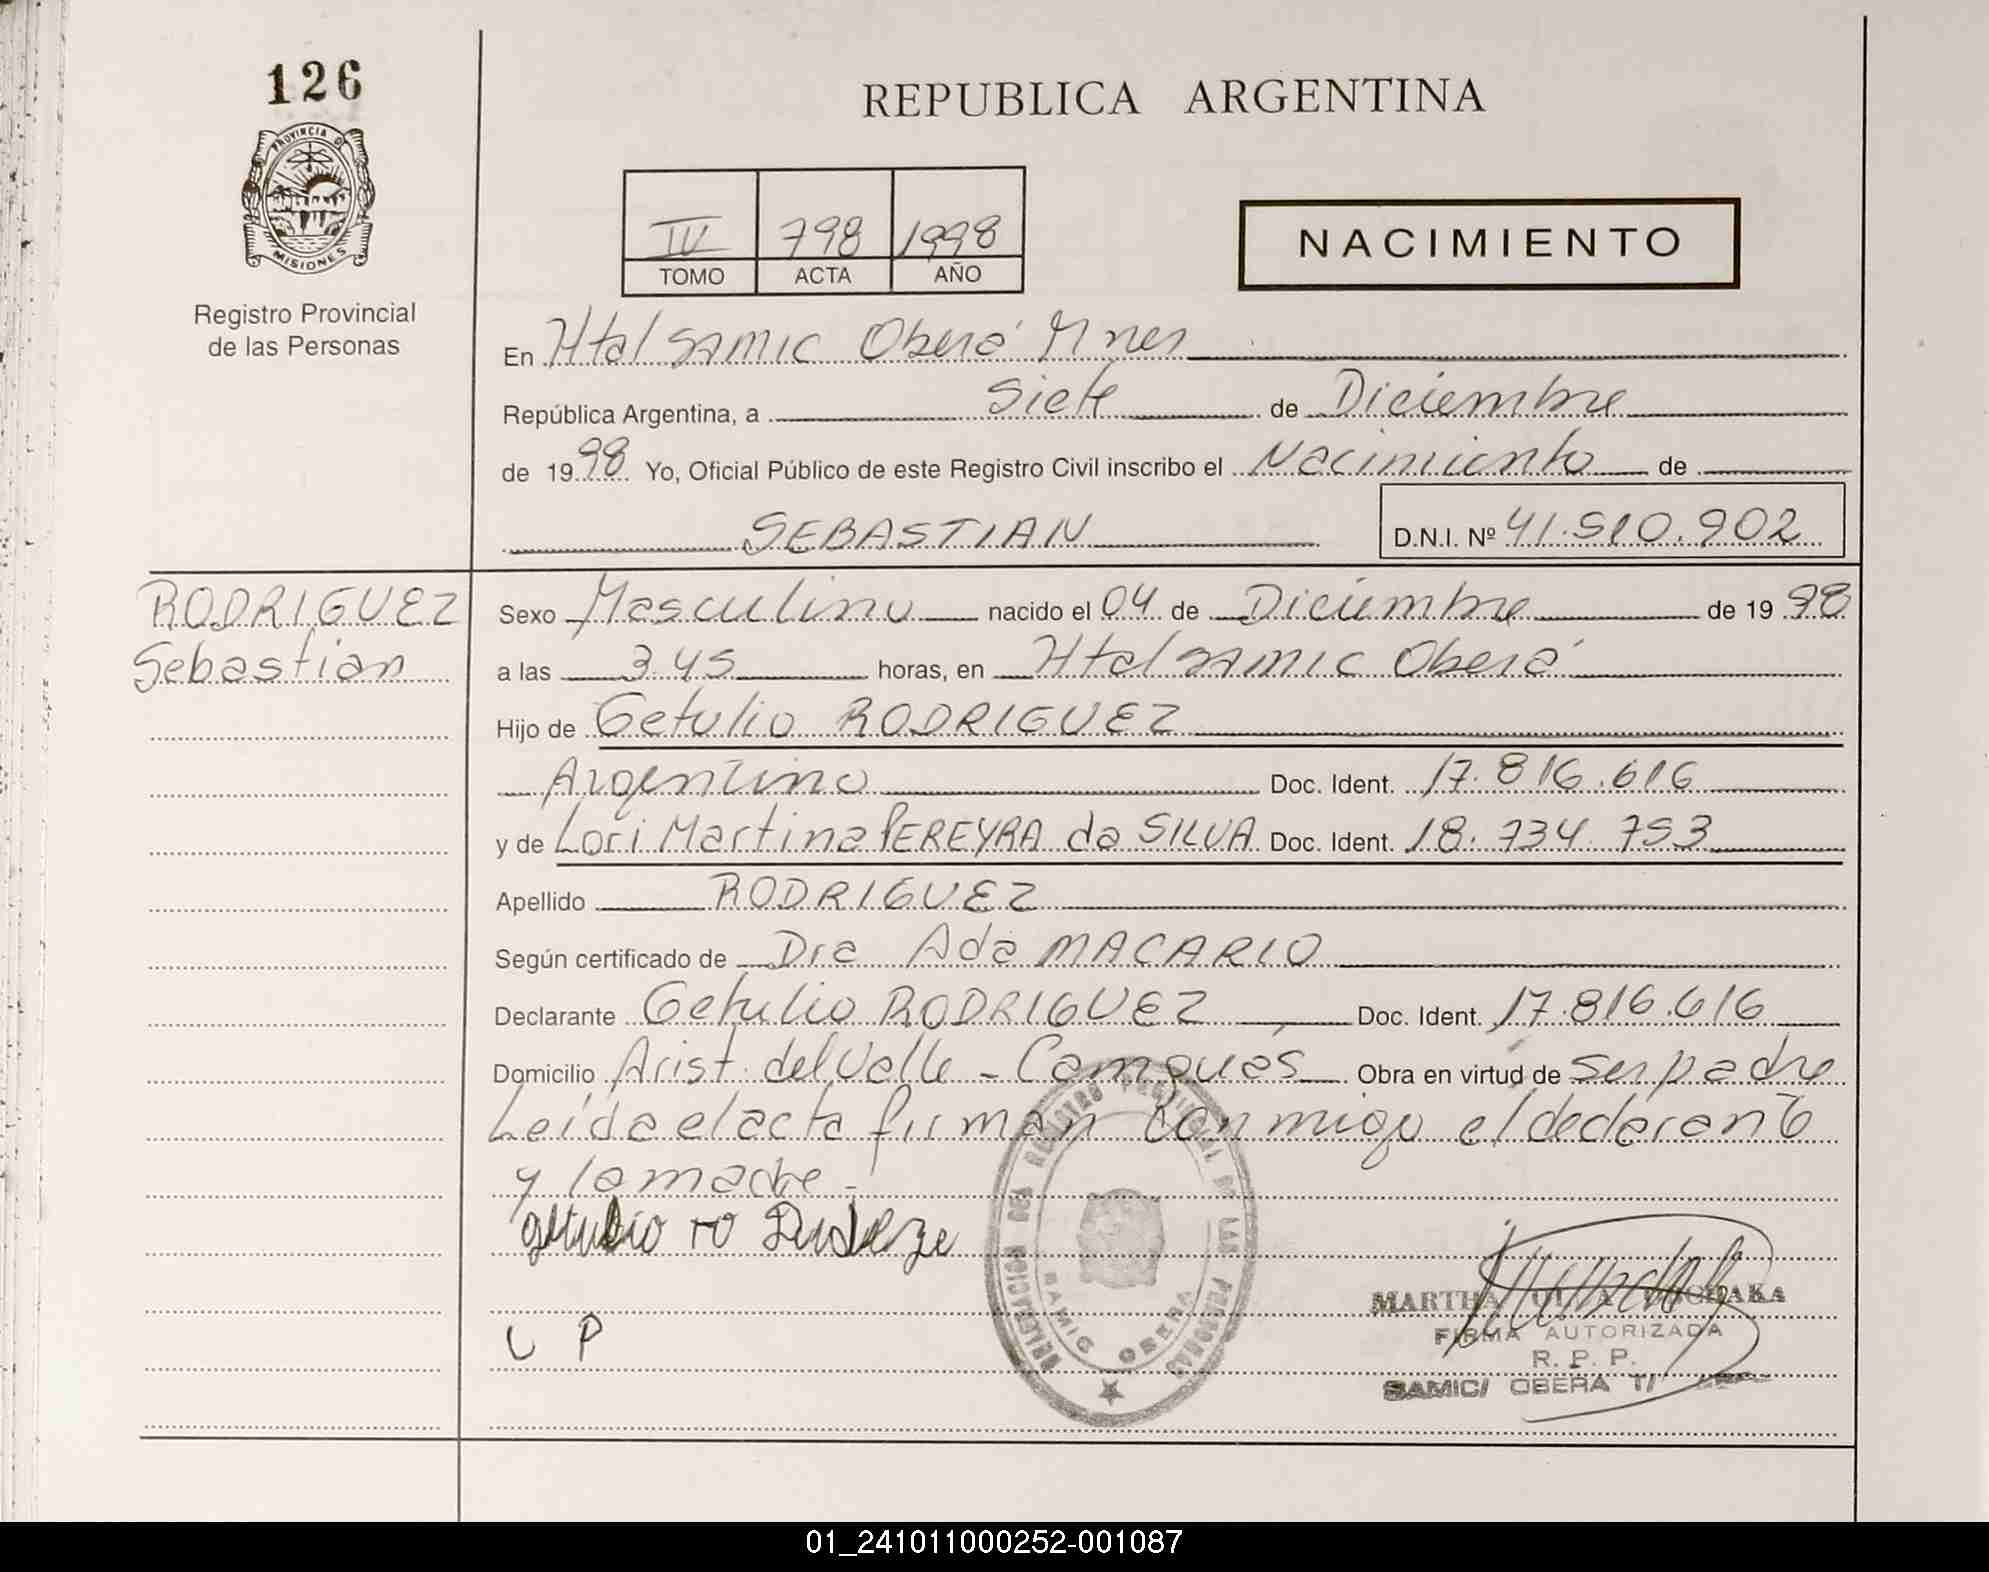 126
PROVINCIA D
MISIONES
Registro Provincial
de las Personas
REPUBLICA ARGENTINA
IV 798 1998
TOMO ACTA AÑO
NACIMIENTO
En Htal samic Oberá Mnes
República Argentina, a siete de Diciembre
de 1998 Yo, Oficial Público de este Registro Civil inscribo el Nacimiento de
SEBASTIAN D.N.I. Nº 41.510.902
RODRIGUEZ
Sebastian
Sexo Masculino nacido el 04 de Diciembre de 1998
a las 3.45 horas, en Htal samic Oberá
Hijo de Getulio RODRIGUEZ
Argentino Doc. Ident. 17.816.616
y de Lori Martina PEREYRA da SILVA Doc. Ident. 18.734.753
Apellido RODRIGUEZ
Según certificado de Dra Ada MACARIO
Declarante Getulio RODRIGUEZ Doc. Ident. 17.816.616
Domicilio Arist. del Valle - Campues Obra en virtud de ser padre
Leida el acta firman conmigo el declarante
y la madre -
getulio ro
L P
DELEGACION DEL REGISTRO PROVINCIAL DE LAS PERSONAS
SAMIC OBERA
MARTHA
FIRMA AUTORIZADA
R. P. P.
SAMIC/ OBERA
01_241011000252-001087